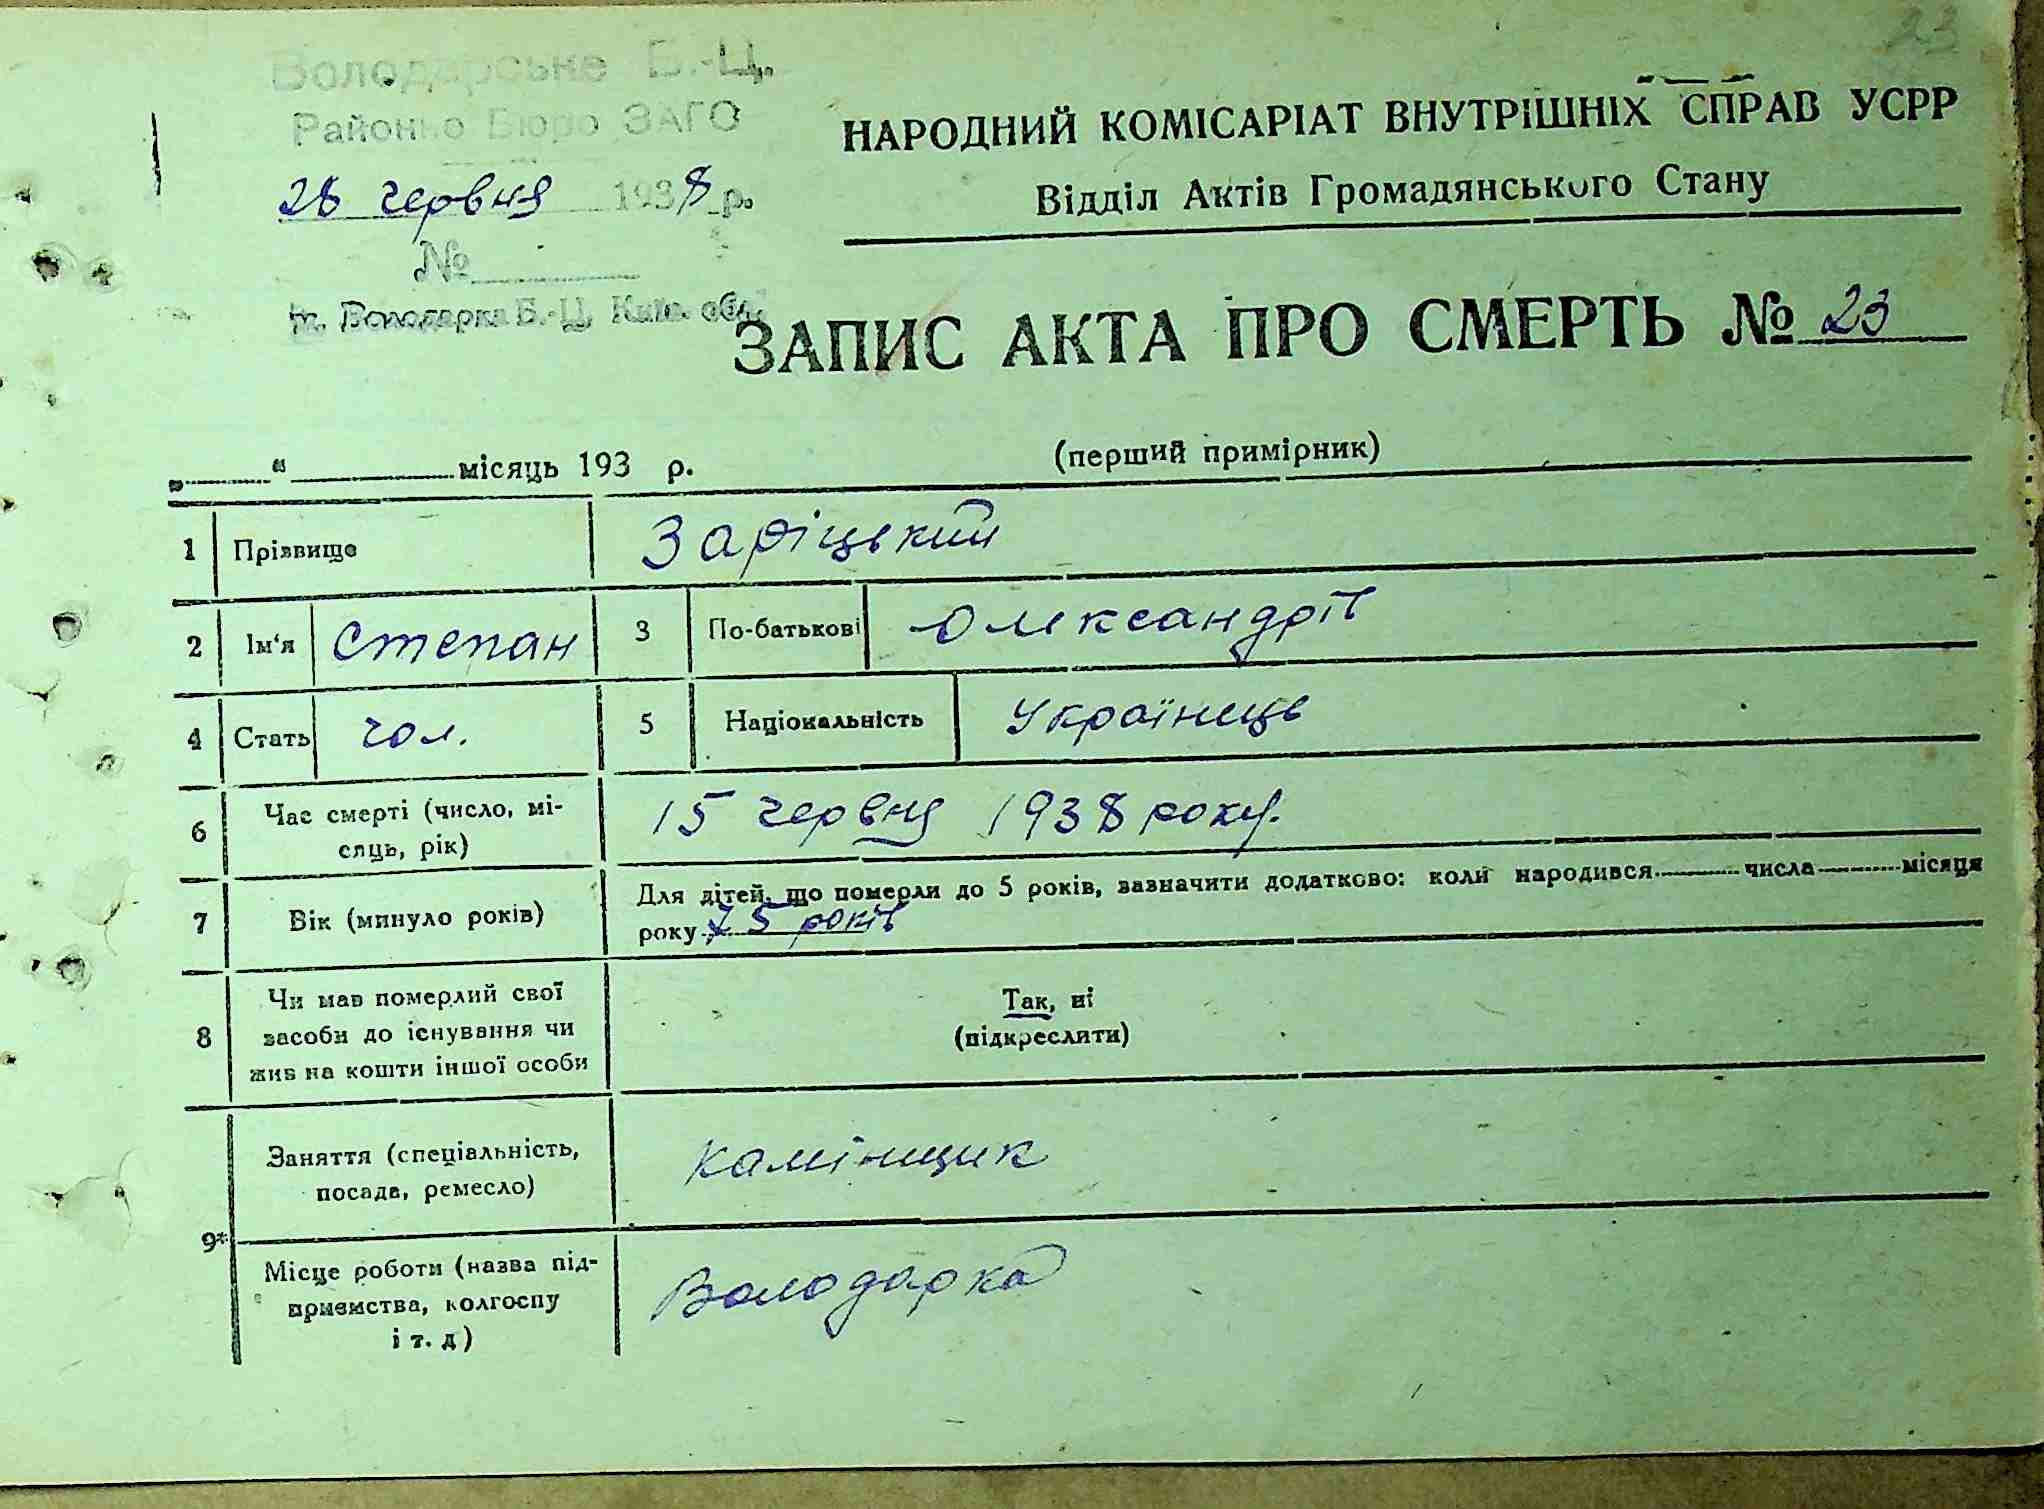 23
Володарське Б.-Ц.
Районно Бюро ЗАГО
28 червня 1938 р.
№
м. Володарка Б.-Ц. Київ. обл.
НАРОДНИЙ КОМІСАРІАТ ВНУТРІШНІХ СПРАВ УСРР
Відділ Актів Громадянського Стану
ЗАПИС АКТА ПРО СМЕРТЬ № 23
„ “ місяць 193 р.
(перший примірник)
1 Прізвище Заріцький
2 Ім‘я Степан 3 По-батькові Олександрів
4 Стать чол. 5 Національність Українець
6 Час смерті (число, мі-
сяць, рік) 15 червня 1938 року.
7 Вік (минуло років) Для дітей, що померли до 5 років, зазначити додатково: коли народився числа місяця
року 75 років
8 Чи мав померлий свої
засоби до існування чи
жив на кошти іншої особи
Так, ні
(підкреслити)
9* Заняття (спеціальність,
посада, ремесло) камінщик
Місце роботи (назва під-
приємства, колгоспу
і т. д) Володарка